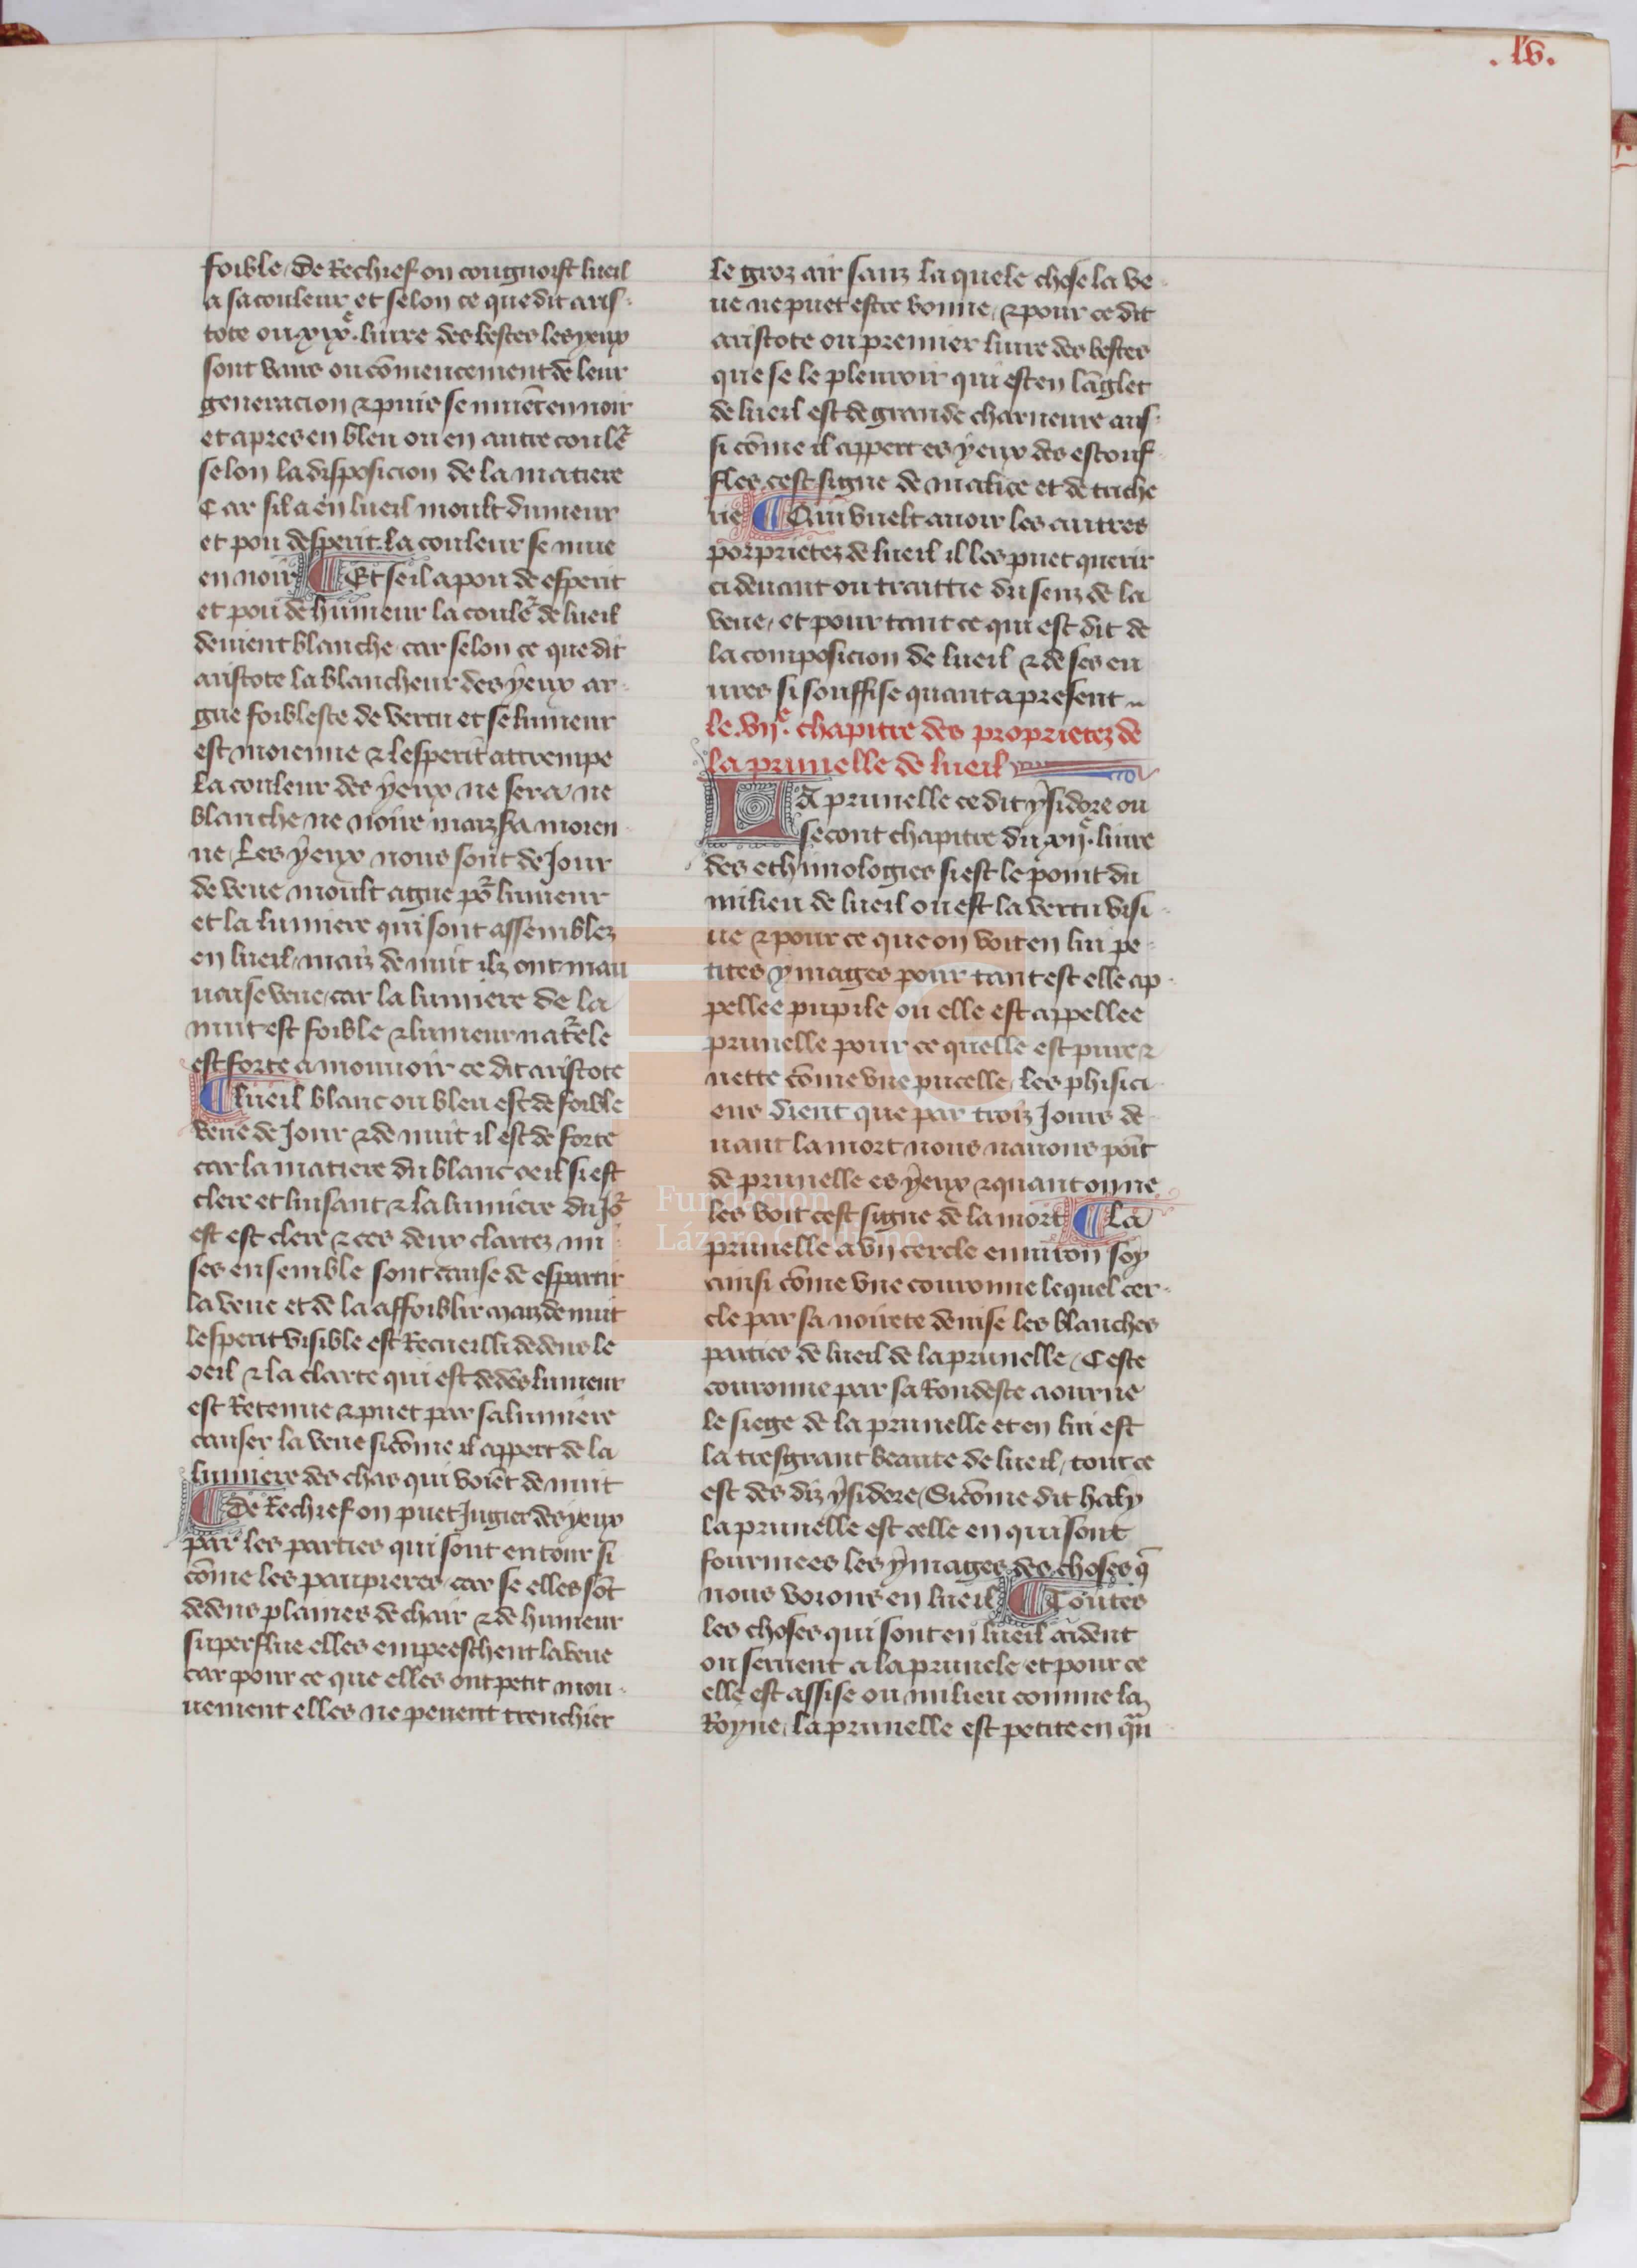 .lv.
foible / de Rechief on congnoist lueil
a sa couleur et selon ce que dit aris-
tote ou xix.e liure des bestes les yeux
sont vairs ou cōmencement de leur
generacion ⁊ puis se muēt en noir
et apres en bleu ou en autre couleᷣ
selon la disposicion de la matiere
Car sil a en lueil moult dumeur
et pou desperit. la couleur se mue
en noir ¶ Et se il a pou de esperit
et pou de humeur la couleᷣ de lueil
deuient blanche car selon ce que dit
aristote la blancheur des yeux ar-
gue foibleste de vertu et se lumeur
est moienne ⁊ lesperit attrempe
la couleur des yeux ne sera ne
blanche ne noire maiz sa moien
ne / Les yeux noirs sont de Jour
de veue moult ague poᷣ lumeur
et la lumiere qui sont assemblez
en lueil / maiz de nuit ilz ont mau
uaise veue / car la lumiere de la
nuit est foible ⁊ lumeur natᷣele
est forte a mouuoir ce dit aristote
¶ lueil blanc ou bleu est de foible
veue de Jour ⁊ de nuit il est de forte
car la matiere du blanc oeil si est
clere et luisant ⁊ la lumiere du Joᷣ
est est clere ⁊ ces deux clartez mi
ses ensemble sont cause de espartir
la veue et de la affoiblir maiz de nuit
lesperit visible est Recueilli dedens le
oeil ⁊ la clarte qui est dedēs lumeur
est Retenue ⁊ puet par sa lumiere
causer la veue si cōme il appert de la
lumiere des chas qui voiēt de nuit
¶ de Rechief on puet Jugier des yeux
par les parties qui sont entour si
cōme les paupieres / car se elles sōt
dedens plaines de chair ⁊ de humeur
superflue elles empeeschent la veue
car pour ce que elles ont petit mou-
uement elles ne peuent trenchier
le groz air sanz la quele chose la ve-
ue ne puet estre bonne / ⁊ pour ce dit
aristote ou premier liure des bestes
que se le pleuroir qui est en lāglet
de lueil est de grande charneure aus-
si cōme il appert es yeux des escouf-
fles / cest signe de malice et de triche
rie ¶ Qui vuelt auoir les autres
porprietez de lueil il les puet querir
ci deuant ou traittie du senz de la
veue / et pour tant ce qui est dit de
la composicion de lueil ⁊ de ses eu
ures si souffise quant a present
le .vij.e chapitre des proprietez de
la prunelle de lueil
La prunelle ce dit ysidore ou
secont chapitre du .xij.e liure
des ethimologies si est le point du
milieu de lueil ou est la vertu visi-
ue ⁊ pour ce que on voit en lui pe-
tites ymages pour tant est elle ap-
pellee pupile ou elle est appellee
prunelle pour ce quelle est pure ⁊
nette cōme vne pucelle / les phisici-
ens dient que par troiz Jours de-
uant la mort nous nauons point
de prunelle es yeux ⁊ quant on ne
les voit cest signe de la mort ¶ La
prunelle a vn cercle enuiron soy
ainsi cōme vne couronne lequel cer-
cle par sa noirete deuise les blanches
parties de lueil de la prunelle / Ceste
couronne par sa Rondeste aourne
le siege de la prunelle et en lui est
la tresgrant beaute de lueil / tout ce
est des diz ysidere / Si cōme dit haly
la prunelle est celle en qui sont
fourmees les ymages des choses q̄
nous voions en lueil ¶ Toutes
les choses qui sont en lueil aident
ou seruent a la prunele / et pour ce
elle est assise ou milieu comme la
Royne / la prunelle est petite en quā
Fundación
Lázaro Galdiano